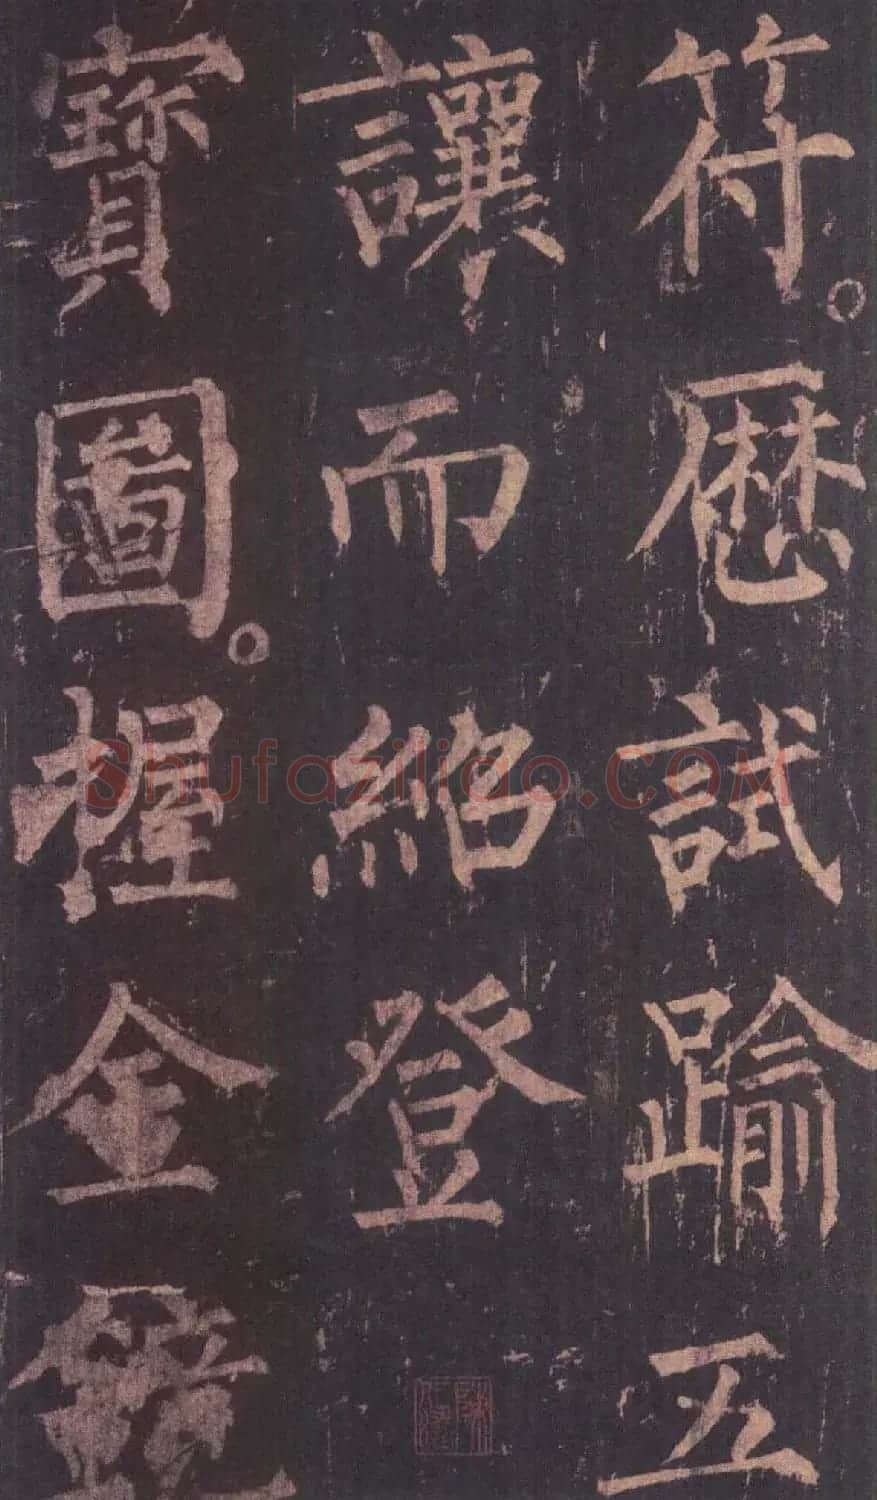 符。歷試踰五
讓而紹登
寳圖。握金鏡
Shufaziliao.COM